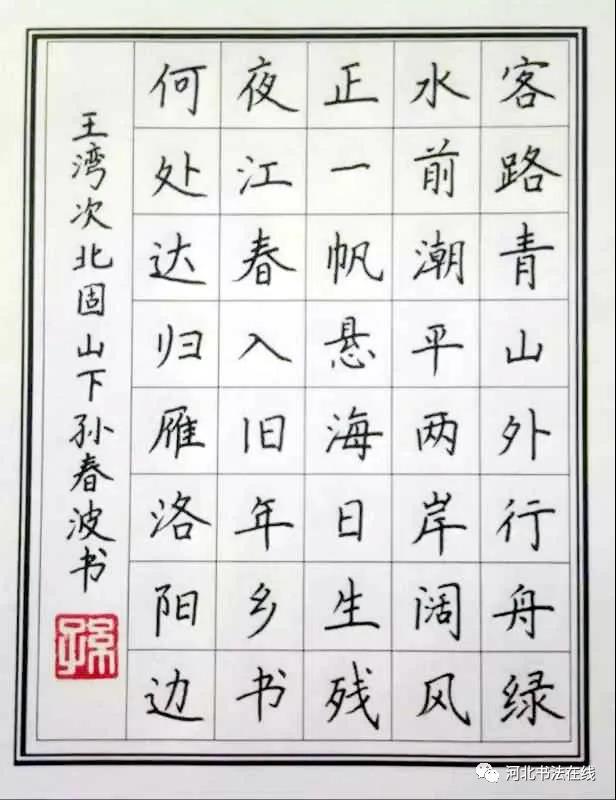 客路青山外行舟绿
水前潮平两岸阔风
正一帆悬海日生残
夜江春入旧年乡书
何处达归雁洛阳边
王湾次北固山下孙春波书
孙
河北书法在线